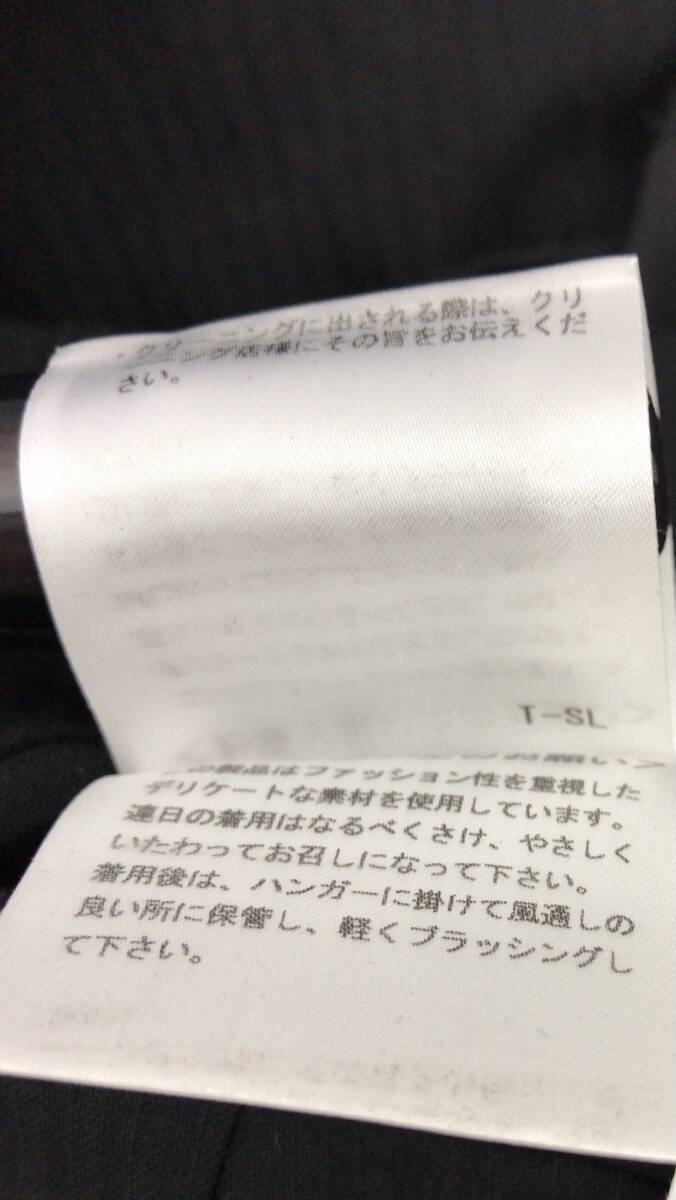 ・クリーニングに出される際は、クリ
ーニング店様にその旨をお伝えくだ
さい。
T-SL
お願い>
この製品はファッション性を重視した
デリケートな素材を使用しています。
連日の着用はなるべくさけ、やさしく
いたわってお召しになって下さい。
着用後は、ハンガーに掛けて風通しの
良い所に保管し、軽くブラッシングし
て下さい。